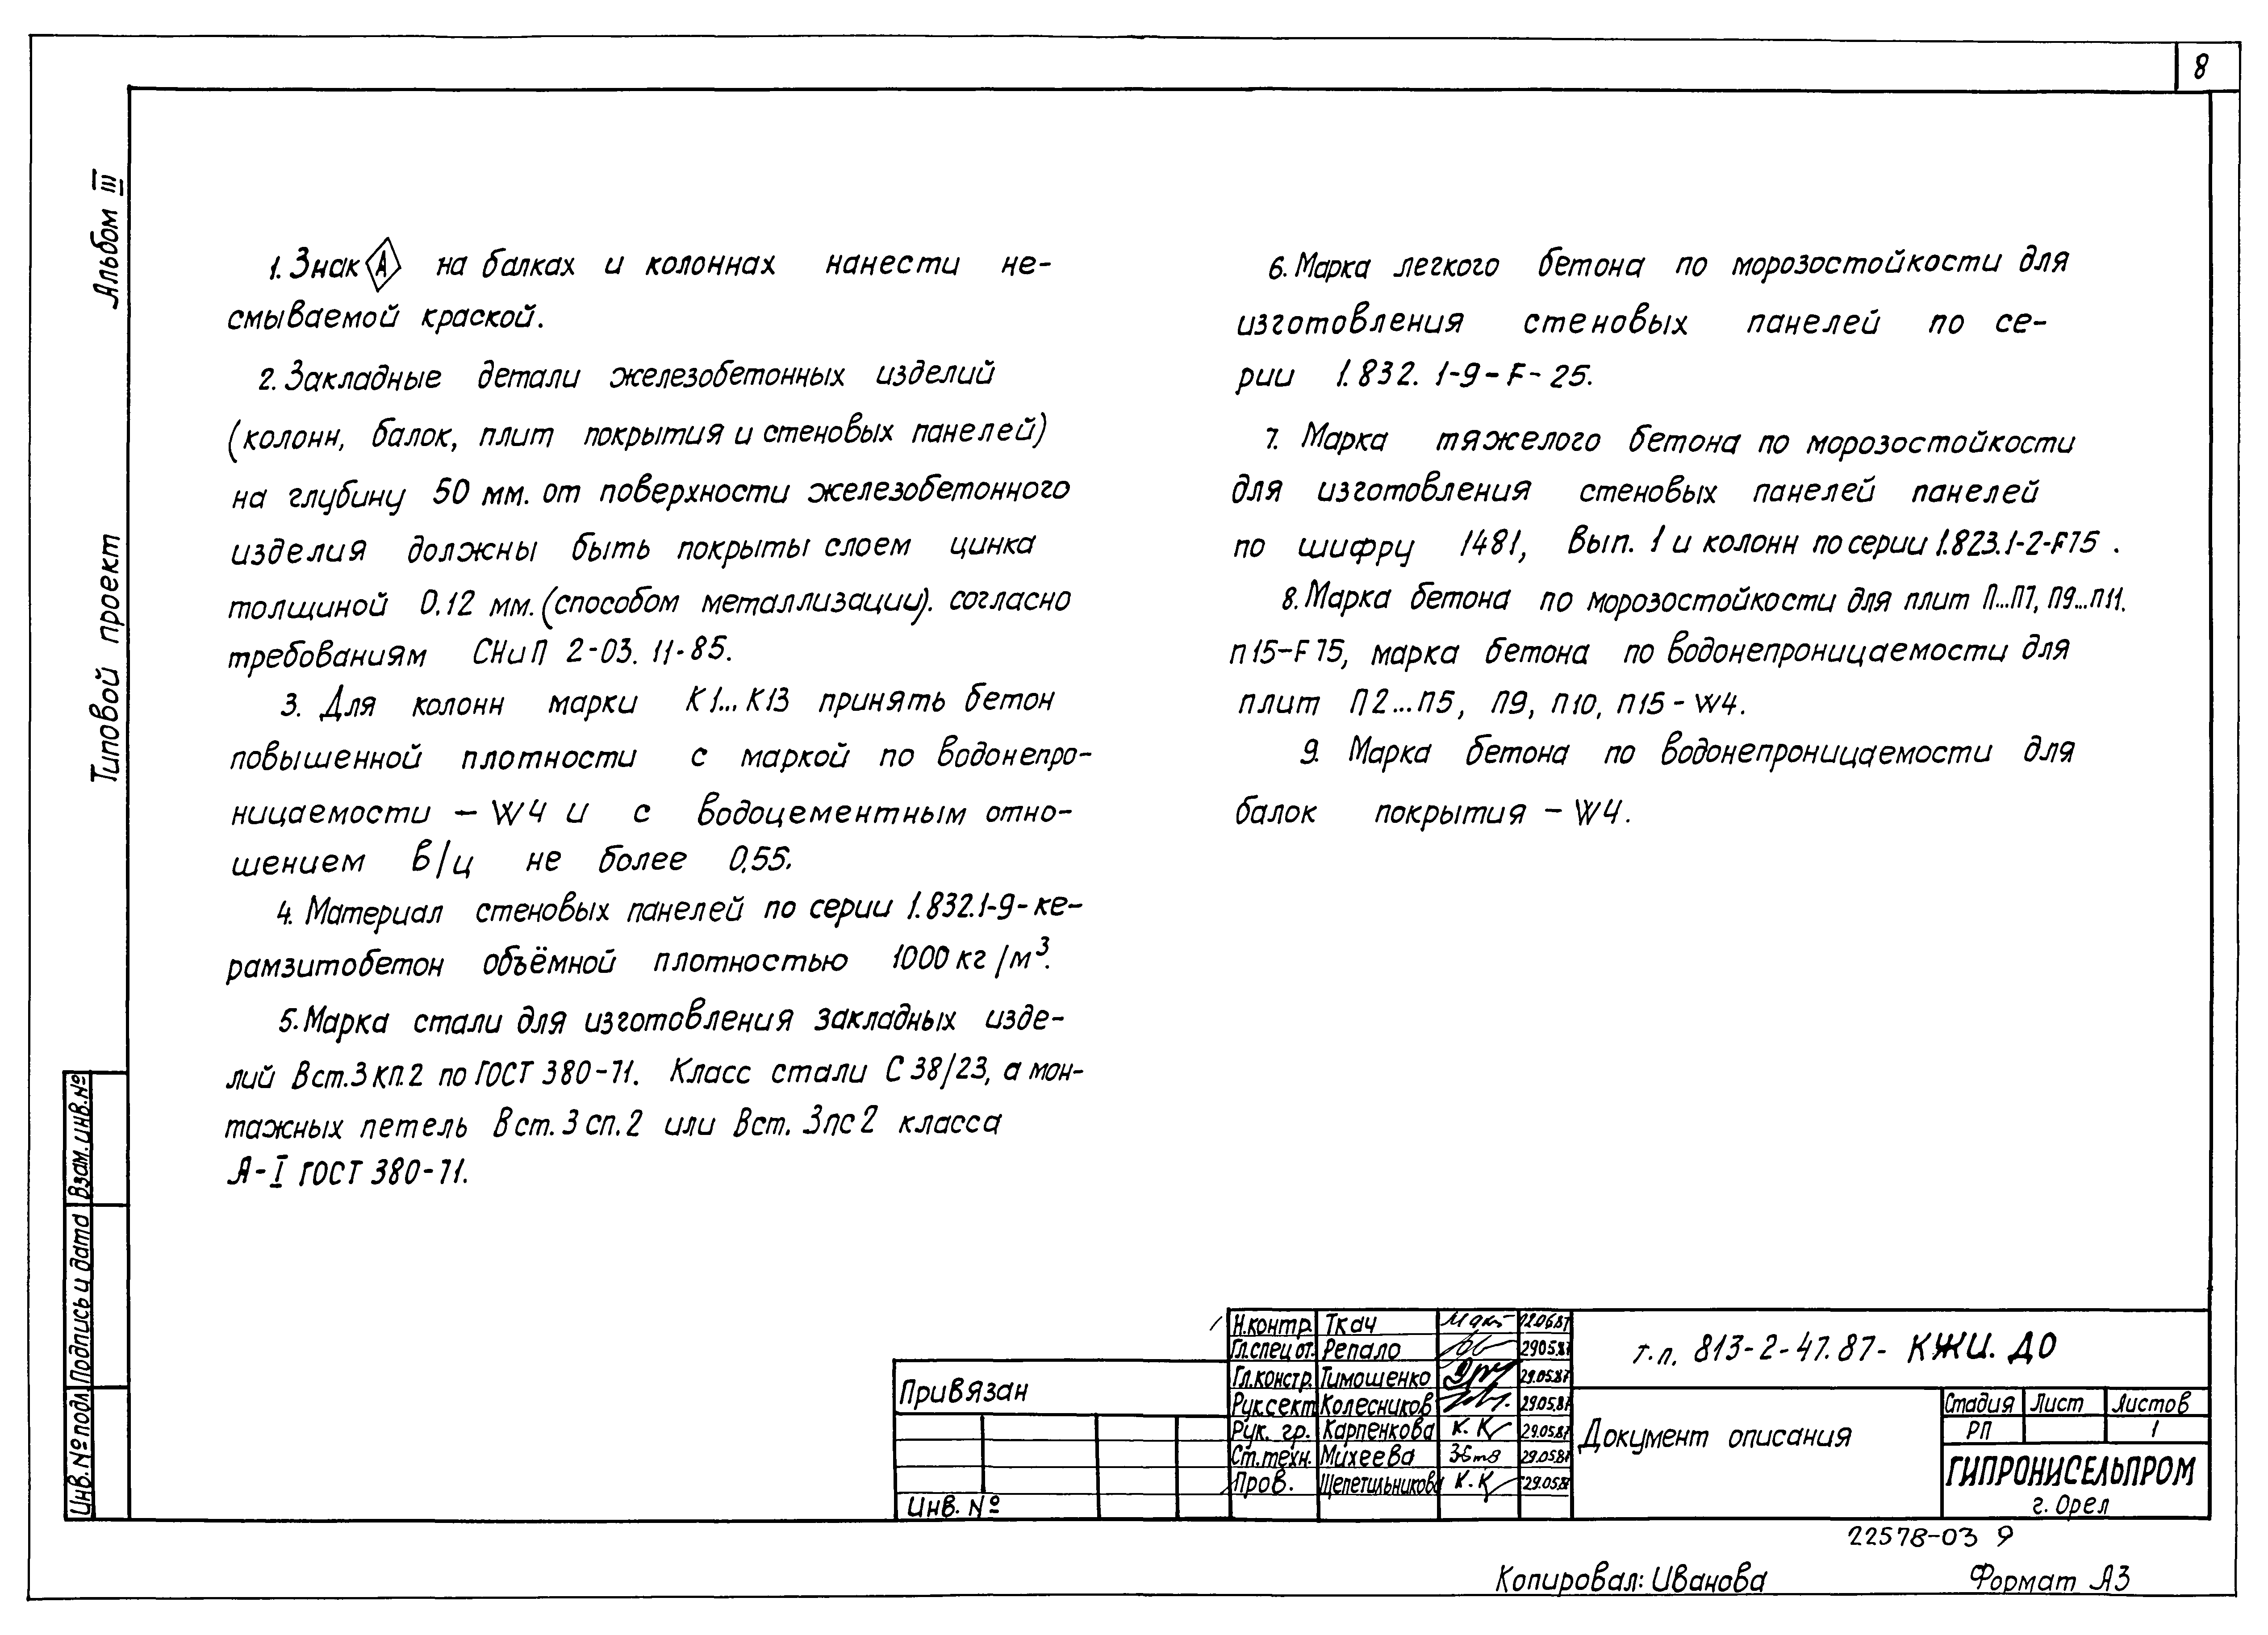 8
Альбом III
Типовой проект
1. Знак А на балках и колоннах нанести не-
смываемой краской.
2. Закладные детали железобетонных изделий
(колонн, балок, плит покрытия и стеновых панелей)
на глубину 50 мм. от поверхности железобетонного
изделия должны быть покрыты слоем цинка
толщиной 0.12 мм. (способом металлизации). согласно
требованиям СНиП 2-03. 11-85.
3. Для колонн марки К1...К13 принять бетон
повышенной плотности с маркой по водонепро-
ницаемости – W4 и с водоцементным отно-
шением в/ц не более 0,55.
4. Материал стеновых панелей по серии 1.832.1-9-ке-
рамзитобетон объёмной плотностью 1000 кг/м³.
5. Марка стали для изготовления закладных изде-
лий Вст.3кп.2 по ГОСТ 380-71. Класс стали С38/23, а мон-
тажных петель Вст.3сп.2 или Вст. 3пс2 класса
А-I ГОСТ 380-71.
6. Марка легкого бетона по морозостойкости для
изготовления стеновых панелей по се-
рии 1.832. 1-9-F-25.
7. Марка тяжелого бетона по морозостойкости
для изготовления стеновых панелей панелей
по шифру 1481, Вып. 1 и колонн по серии 1.823.1-2-F75.
8. Марка бетона по морозостойкости для плит П...П7, П9...П11.
П15-F75, марка бетона по водонепроницаемости для
плит П2...П5, П9, П10, П15-W4.
9. Марка бетона по водонепроницаемости для
балок покрытия – W4.
Взам.инв.№
Подпись и дата
Инв.№подл.
Привязан
Инв. №
Н.контр. Ткач 02.06.87
Гл.спец от. Репало 29.05.87
Гл.констр. Тимошенко 29.05.87
Рук.сект. Колесников 29.05.87
Рук. гр. Карпенкова К.К 29.05.87
Ст.техн. Михеева 29.05.87
Пров. Щепетильникова К.К 29.05.87
т.п. 813-2-47.87- КЖИ. ДО
Документ описания
Стадия Лист Листов
РП 1
ГИПРОНИСЕЛЬПРОМ
г. Орел
22578-03 9
Копировал: Иванова Формат А3